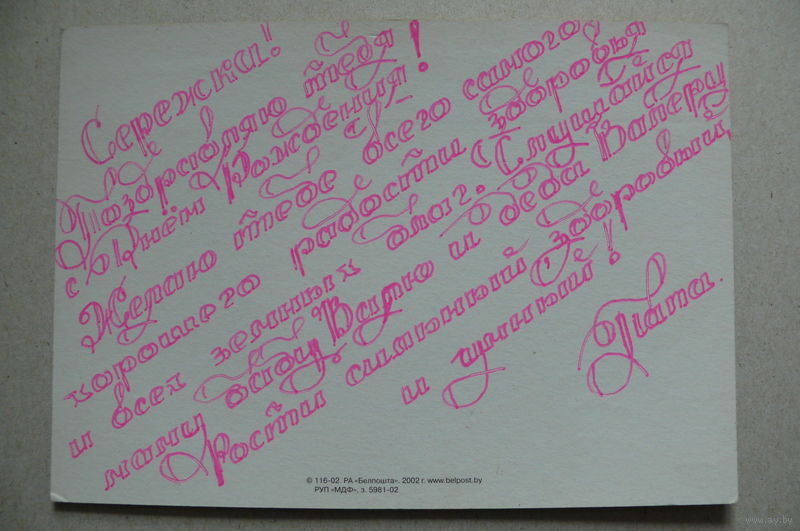 Сережка!
Поздравляю тебя
с Днём Рождения!
Желаю тебе всего самого
хорошего радости здоровья
и всех земных благ. Слушайся
маму бабу Валю и деда Валеру
Рости сильный здоровый,
и умный!
Папа.
© 116-02. РА «Белпошта». 2002 г. www.belpost.by
РУП «МДФ», з. 5981-02
www.ay.by